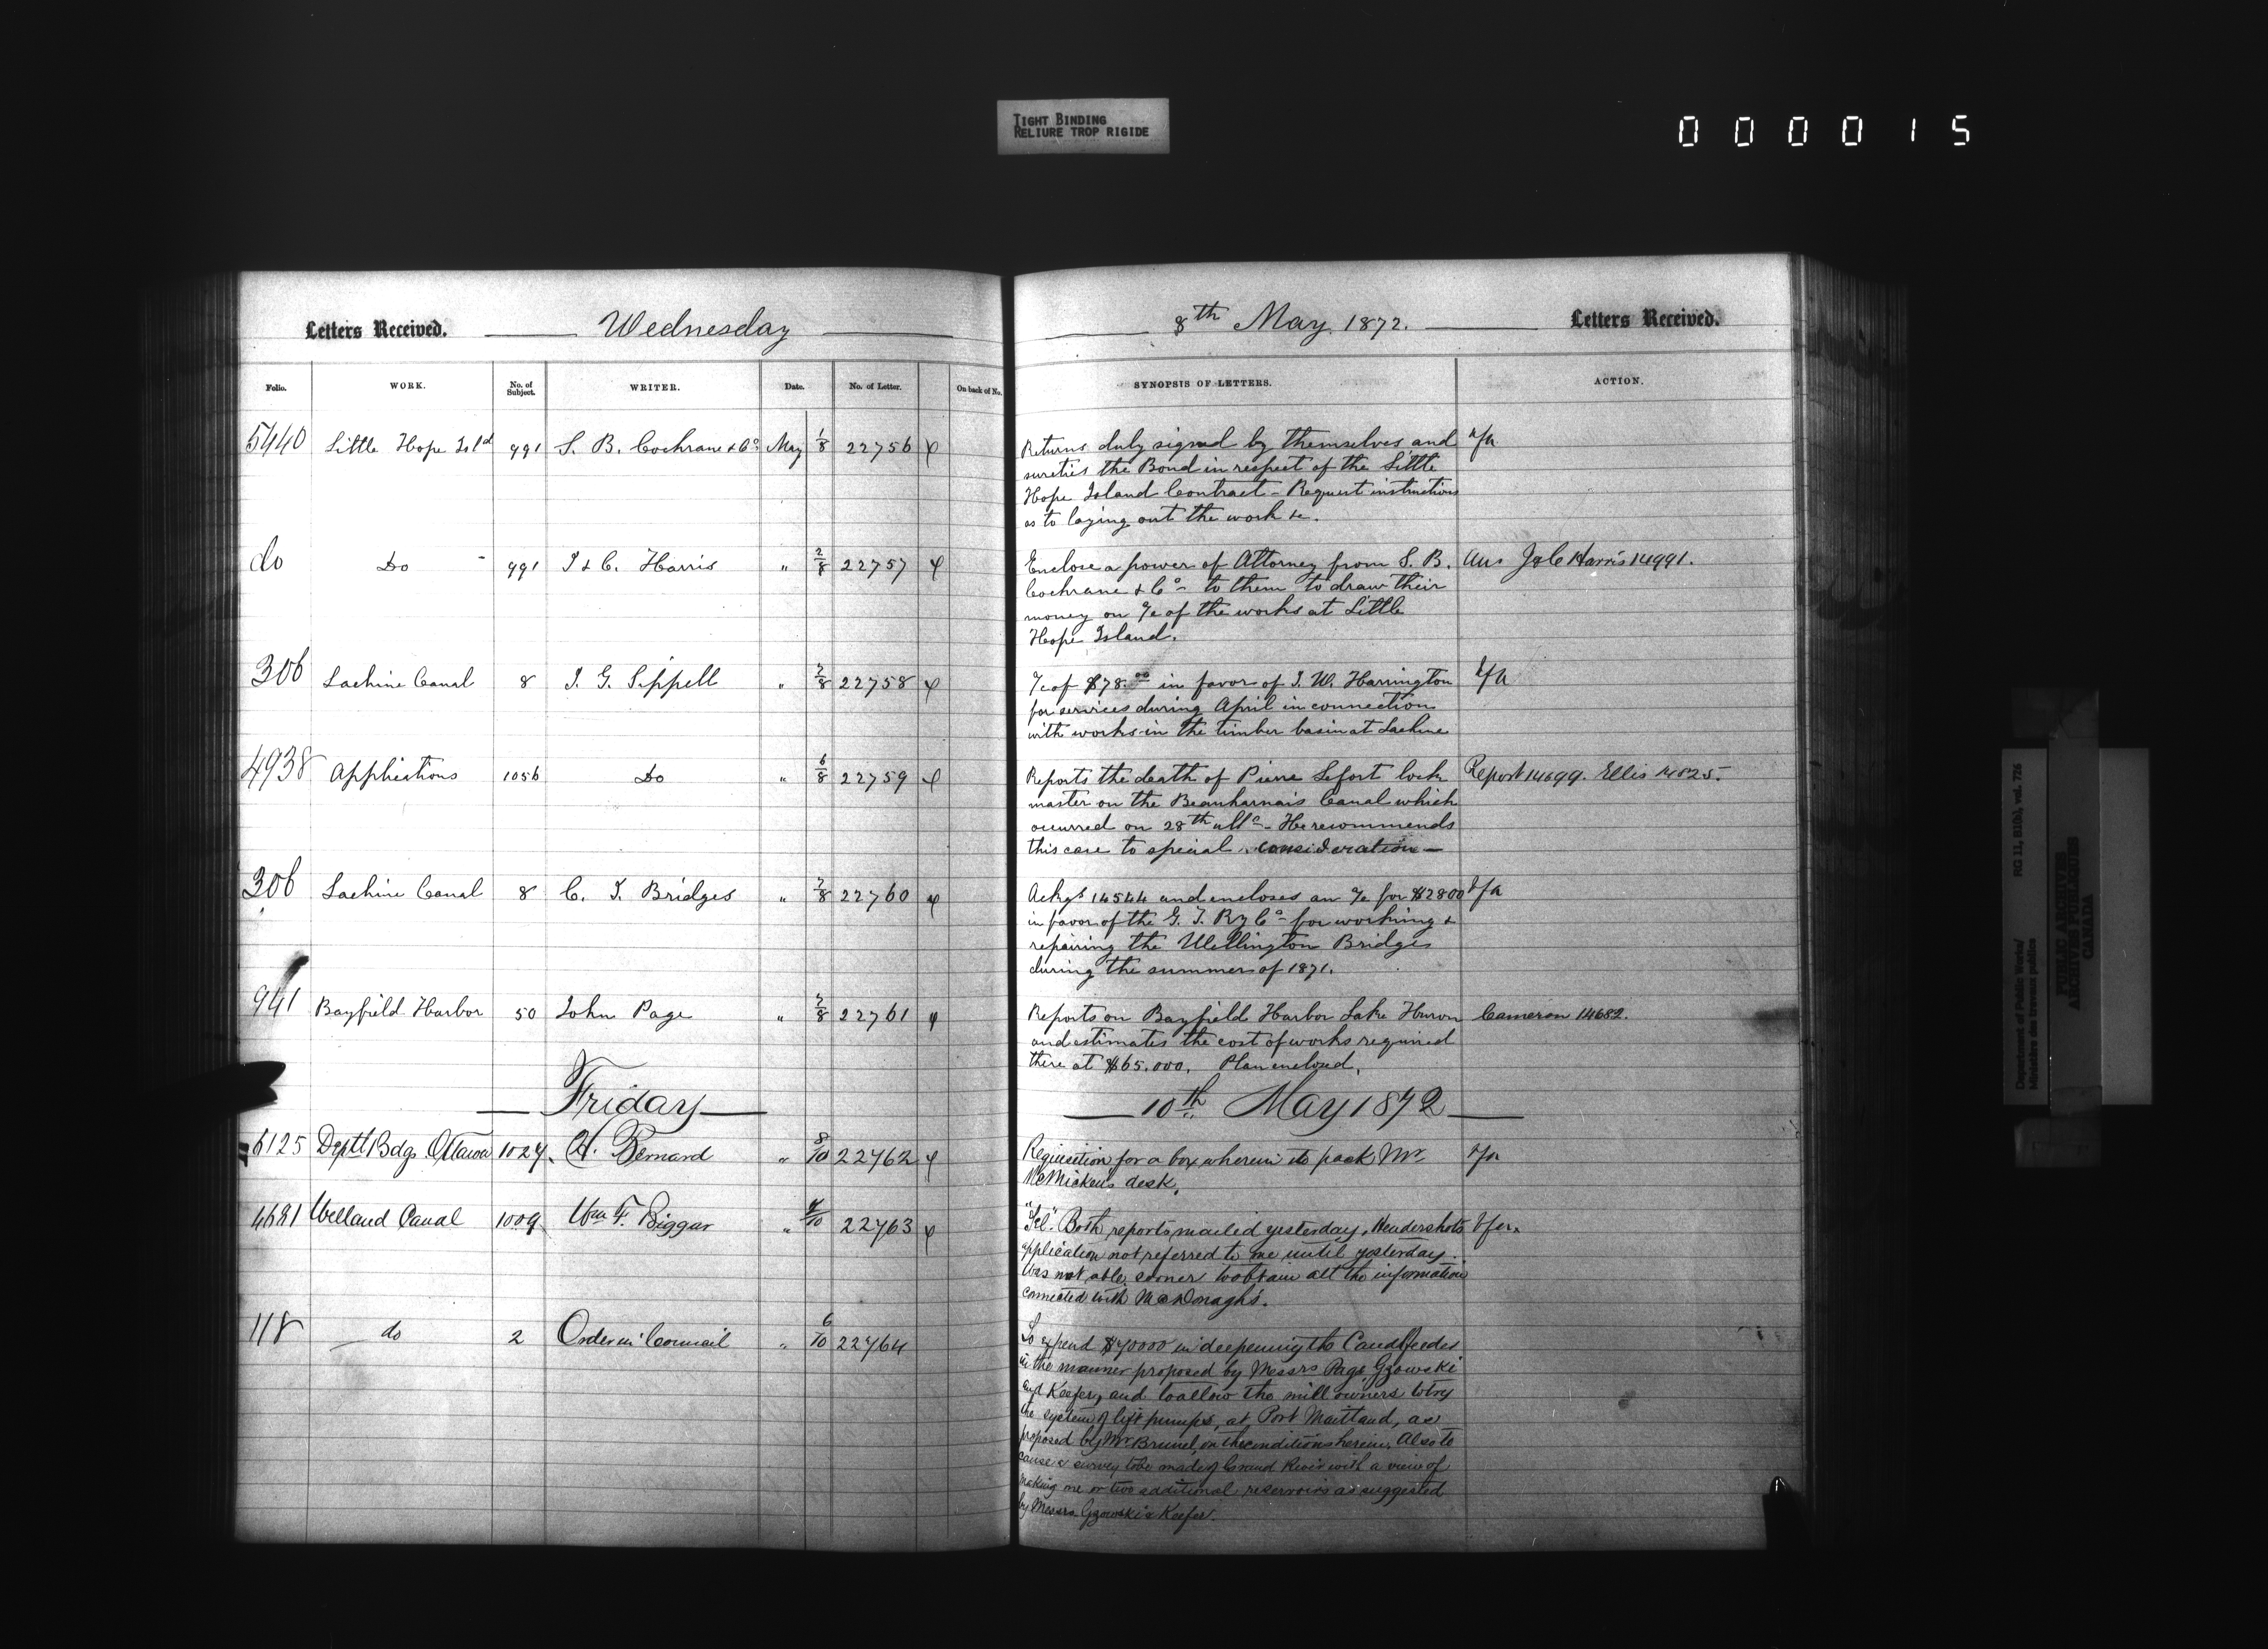 TIGHT BINDING
RELIURE TROP RIGIDE
000015
Letters Received. Wednesday
Folio. WORK. No. of Subject. WRITER. Date. No. of Letter. On back of No.
5440 Little Hope Isld 991 S. B. Cochrane & Co. May 1/8 22756
do Do 991 I & C. Harris " 2/8 22757
306 Lachine Canal 8 J. G. Sippell " 7/8 22758
4938 Applications 1056 Do " 6/8 22759
306 Lachine Canal 8 C. J. Bridges " 7/8 22760
941 Bayfield Harbor 50 John Page " 7/8 22761
Friday
6125 Deptl Bdgs Ottawa 1027 H. Bernard " 8/10 22762
4681 Welland Canal 1009 Wm F. Biggar " /10 22763
118 do 2 Order in Council " 6/10 22764
8th May 1872. Letters Received.
SYNOPSIS OF LETTERS. ACTION.
Returns duly signed by themselves and
sureties the Bond in respect of the Little
Hope Island Contract - Request instructions
as to laying out the work &c.
Enclose a power of Attorney from S. B. Ans J & C Harris 14991.
Cochrane & Co - to them to draw their
money on a/c of the works at Little
Hope Island.
a/c of $78.00 in favor of J. W. Harrington
for services during April in connection
with works in the timber basin at Lachine
Reports the death of Pierre Lefort lock Report 14699. Ellis 14825.
master on the Beauharnais Canal which
occurred on 28th ulto - He recommends
this case to special consideration -
Ackgs 14544 and encloses an a/c for $2800
in favor of the G. T. Ry Co - for working &
repairing the Wellington Bridges
during the summer of 1871.
Reports on Bayfield Harbor Lake Huron Cameron 14682.
and estimates the cost of works required
there at $65.000. Plan enclosed.
10th May 1872
Requisition for a box wherein to pack Mr.
McMicken's desk.
"Tel." Both reports mailed yesterday. Hendershots
application not referred to me until yesterday.
Was not able sooner to obtain all the information
connected with McDonagh's.
To expend $70000 in deepening the Canal feeder
in the manner proposed by Messrs Page, Gzowski
and Keefer, and to allow the mill owners to try
the system of lift pumps, at Port Maitland, as
proposed by Mr Brunel, on the conditions herein. Also to
cause a survey to be made of Grand River with a view of
making one or two additional reservoirs as suggested
by Messrs Gzowski & Keefer.
Department of Public Works/ RG 11, B1(b), vol. 726
Ministère des travaux publics
PUBLIC ARCHIVES
ARCHIVES PUBLIQUES
CANADA